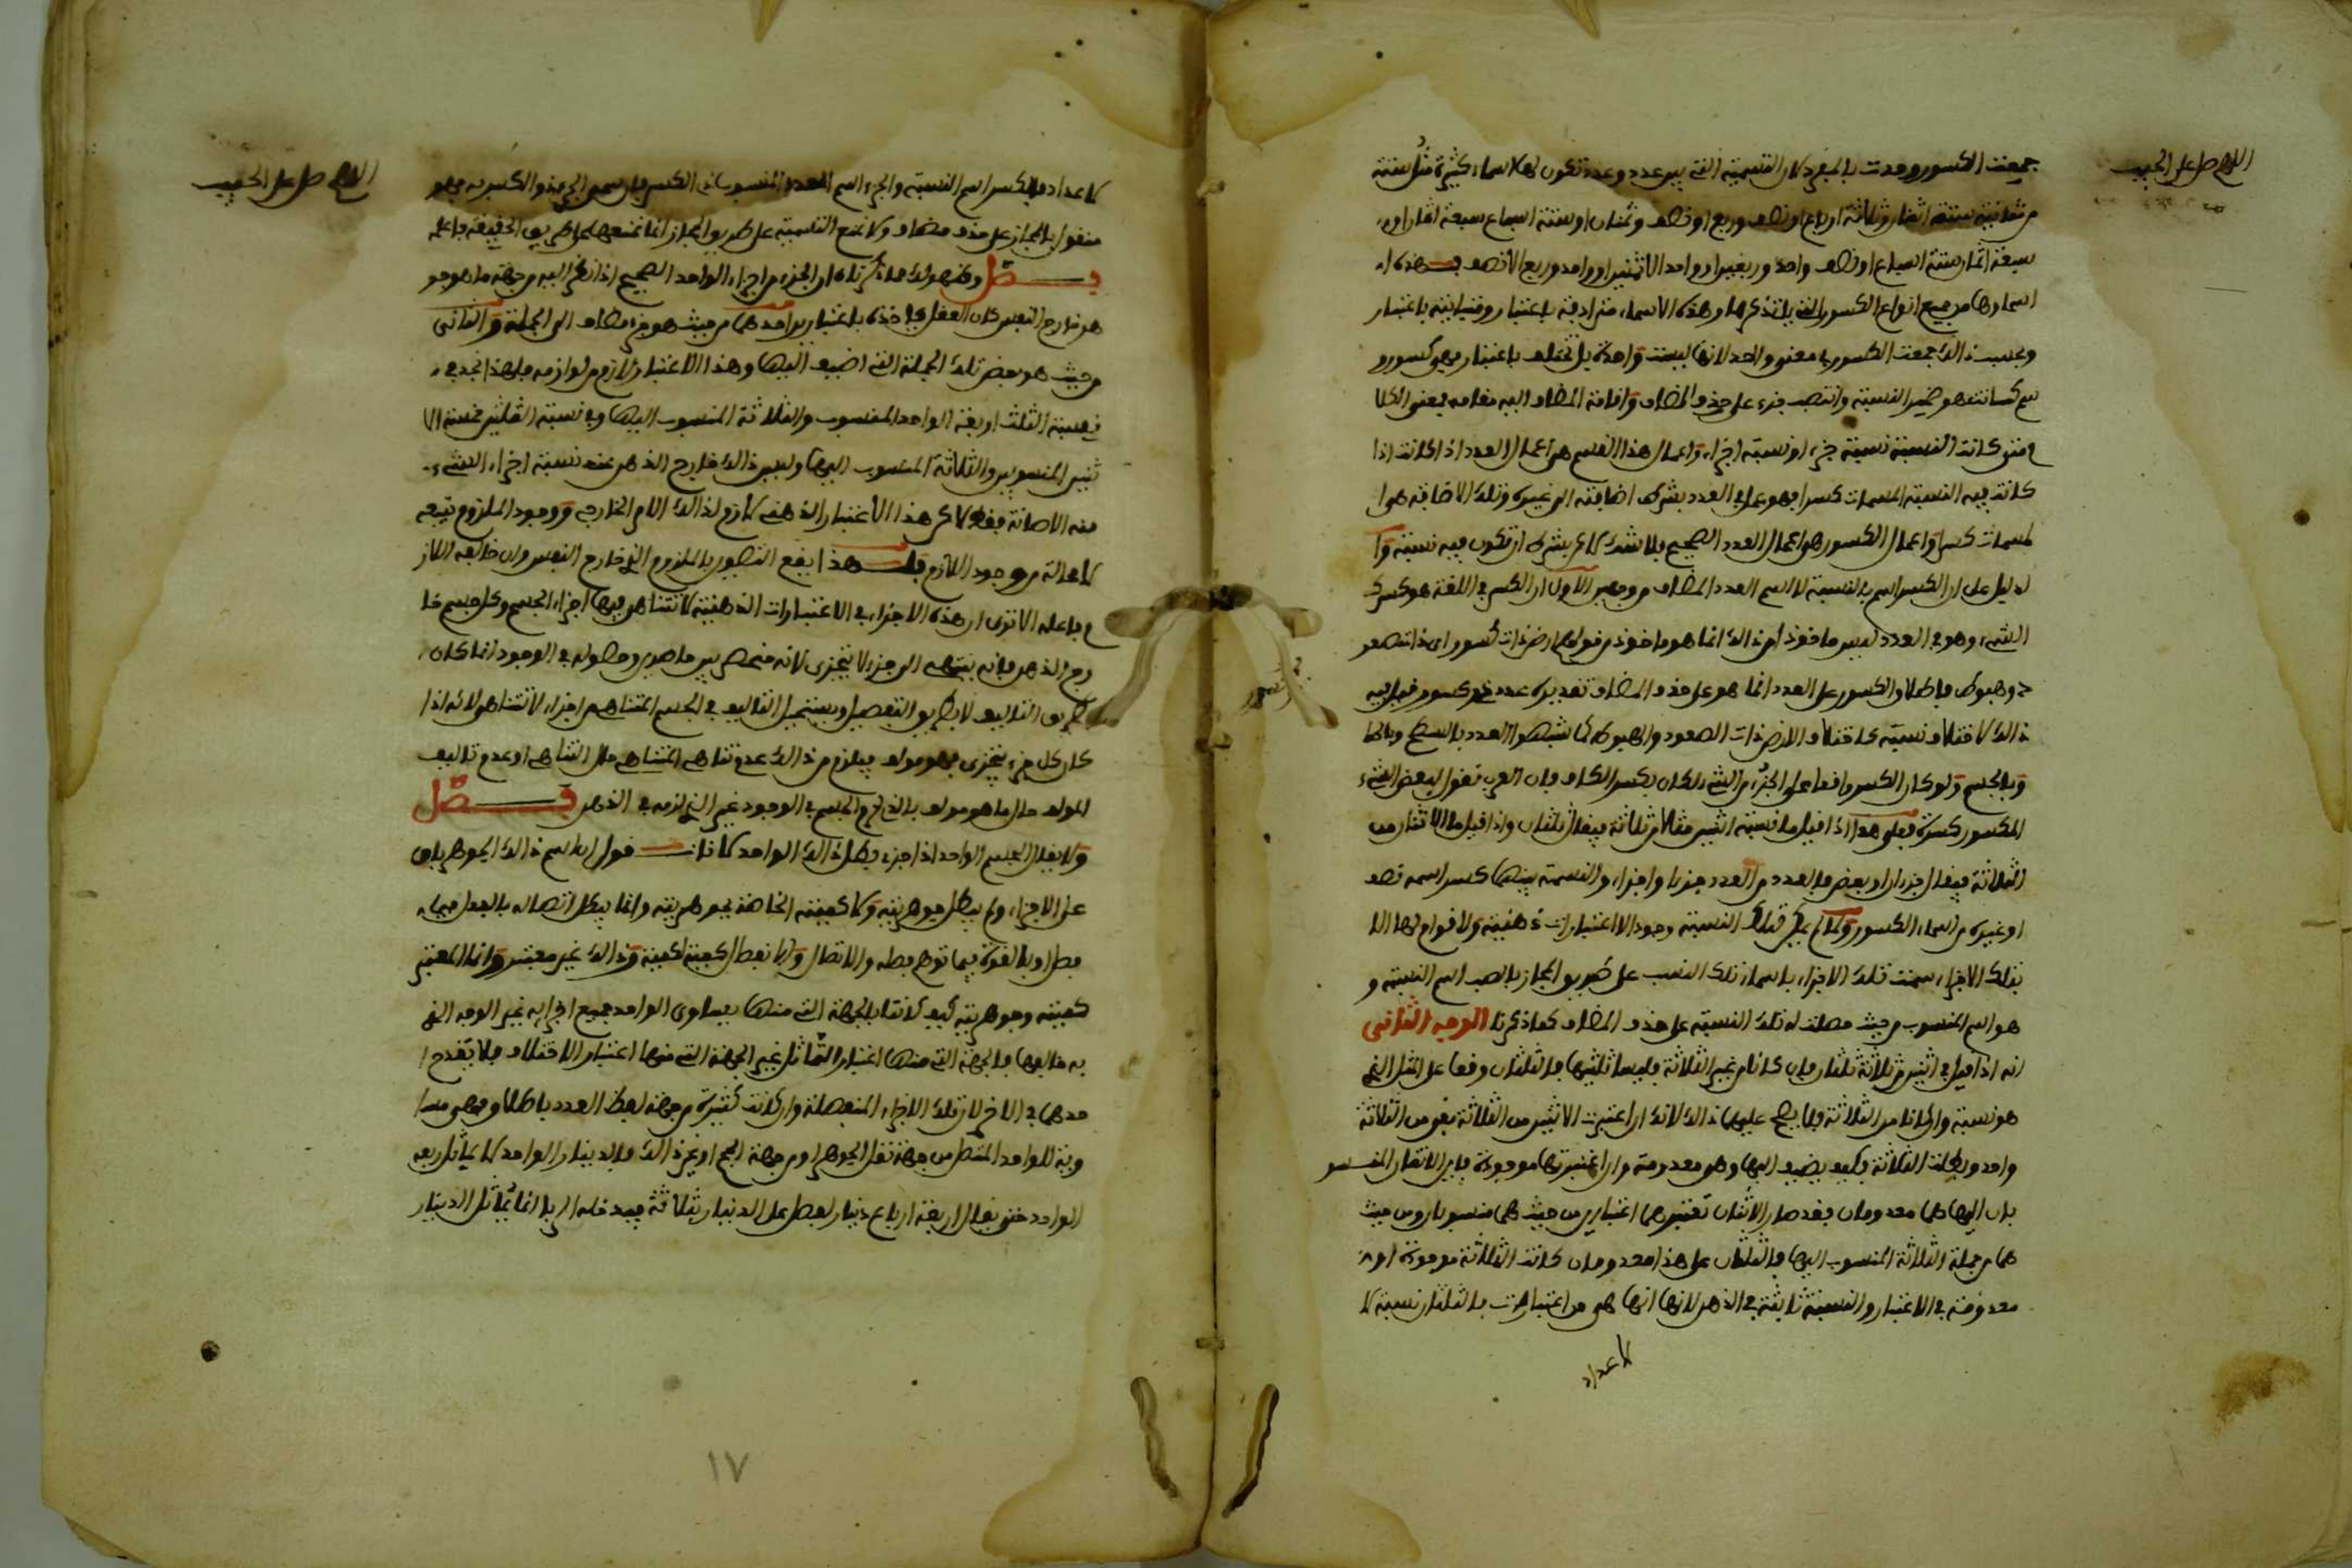 اللهم صل على الحبيب
جمعت الكسور وحدت بالمفرد كان التسمية التي بين عدد وعدد تكون لها اسماء كثيرة مثل ستة
من ثمانية ستة اثمان وثلاثة ارباع او نصف وربع او نصف وثمنان او ستة اسباع سبعة اثمان او
سبعة اثمان ستة اسباع او نصف واحد وربعين او واحد الا ثمنين او واحد وربع الا نصف فهذه ا
اسماؤها من جميع انواع الكسور التي يلتذكرها وهذه الاسماء مترادفة باعتبار ومتباينة باعتبار
وبحسب ذالك جمعت الكسور بمعنى واحد لانها ليست واحدة بل تختلف باعتبار فهي كسور و
ضمير النسبة وانتصب جزء على حذف المضاف واقامة المضاف اليه مقامه يعني الكلا
م متى كانت النسبة نسبة جزء او نسبة اجزاء واعمال هذا القسم هي اعمال العدد اذا كانت اذا
كانت فيه النسبة المسمات كسرا فهو عمل في العدد بشرط اضافته الى غيره وتلك الاضافة هي ا
لمسمات كسرا واعمال الكسور هو اعمال العدد الصحيح بلا شك لاكن بشرط ان تكون فيه نسبة وا
لدليل على ان الكسر اسم بالنسبة لا اسم العدد المضاف من وجهين الاول ان الكسر في اللغة هو كسرك
الشيء وهو في العدد ليس ماخوذا من ذالك انما هو ماخوذ من قولهم ارض ذات كسور اى ذات صعو
د وهبوط فاطلاق الكسور على العدد انما هو على حذف المضاف تقديره عدد ذو كسور فقيل فيه
ذالك لاختلاف نسبته كاختلاف الارض ذات الصعود والهبوط كما شبهوا العدد بالسطح وبالخط
وبالجسم ولو كان الكسر واقعا على الجزء من الشيء لكان بكسر الكاف فان العرب تقول لبعض الشيء
المكسور كسرة فعلى هذا اذا قيل ما نسبة اثنين مثلا من ثلاثة فيقال ثلثان واذا قيل ما الاثنان من
الثلاثة فيقال جزءان او بعض فالعدد من العدد جزءا واجزاء والنسبة بينهما كسر اسمه نصف
او غيره من اسماء الكسور ولما لم يكن لتلك النسبة وجود الا اعتبارات ذهنية ولا قوام لها الا
بتلك الاجزاء سميت تلك الاجزاء باسماء تلك النسب على طريق المجاز بالنصب اسم النسبة و
هو اسم المنسوب من حيث حصلت له تلك النسبة على حذف المضاف كما ذكرنا الوجه الثاني
انه اذا قيل في اثنين من ثلاثة ثلثان فان كانا من غير الثلاثة فليسا ثلثيها فالثلثان وقعا على المثل الذي
هو نسبة وان كانا من الثلاثة فلا يصح عليهما ذالك لانك ان اعتبرت الاثنين من الثلاثة بقي من الثلاثة
واحد وبطلت الثلاثة فكيف يضيف اليها وهي معدومة وان اعتبرتها موجودة فاين الاثنان المنسو
بان اليها هما معدومان فقد صار الاثنان تعتبرهما اعتبارين من حيث هما منسوبان ومن حيث
هما من جملة الثلاثة المنسوب اليها فالثلثان على هذا معدومان كانت الثلاثة موجودة او
معدومة في الاعتبار والنسبة ثابتة في الذهن لانها انما هي من اعتباراته فالثلثان نسبة لا
لاعداد
اللهم صل على الحبيب
لاعداد فالكسر اسم النسبة والجزء اسم العدد المنسوب ذي الكسر فان سمي الجزء بذو الكسر به فهو
منقول بالمجاز على حذف مضاف ولا نمنع التسمية على طريق المجاز انما نمنعها على طريق الحقيقة فاعلم
فصل ومفهوم ذلك مما ذكرناه ان الجزء من اجزاء الواحد الصحيح اذا نظر اليه من جهة ما هو جو
هر خارج النفس كان العقل ياخذه باعتبارين احدهما من حيث هو جزء مضاف الى الجملة والثاني
من حيث هو بعض تلك الجملة التي اضيف اليها وهذا الاعتبار لازم من لوازمه فلهذا نجد في
نسبة الثلث اربعة الواحد المنسوب والثلاثة المنسوب اليها وفي نسبة الثلثين خمسة الا
ثنين المنسوبين والثلاثة المنسوب اليها وليس ذالك خارج الذهن عند نسبة اجزاء الشيء
منه الاضافة فقط لاكن هذا الاعتبار الذهني لازم لذالك الامر الخارجي ووجود الملزوم يتبعه
لا محالة وجود اللازم قلت هذا يقع التصور بالملزوم الذي خارج النفس وان خالفه اللاز
م فاعلم الا ترى ان هذه الاجزاء في الاعتبارات الذهنية لا تتناهى فيها اجزاء الجسم وكل جسم خا
رج الذهن فانه ينتهي الى جزء لا يتجزى لانه منحصر بين حاصرين وحصوله في الوجود انما كان
بطريق التاليف لا بطريق التفصيل ويستحيل التاليف في الجسم المتناهي من اجزاء لا تتناهى لانه اذا
كان كل جزء يتجزى فهو مولف فيلزم من ذالك عدم تناهي المتناهي حال التناهي او عدم تاليف
المولف حال ما هو مولف بالخارج والجسم في الوجود غير الذي لزمه في الذهن فصل
ولا يقال الجسم الواحد اذا جزء بطل ذالك الواحد لانا نقول ان اسم ذالك الجوهر باق
على الاجزاء ولم يبطل جوهريته ولا كميته الخاصة بجوهريته وانما يبطل اتصاله بالفعل فيما
فصل او بالقوة فيما توهم فصله والاتصال والانفصال كيفية لكميته وذالك غير معتبر وانما المعتبر
كميته وجوهريته كيف كانتا بالجهة التي منها يساوى الواحد جميع اجزائه غير الوجه الذي
به خالفها فالجهة التي منها اعتبار التماثل غير الجهة التي منها اعتبار الاختلاف فلا يقدح ا
حدهما في الاخر لان تلك الاجزاء المنفصلة وان كانت كثيرة من جهة لفظ العدد باطلاق فهي مسا
وية للواحد المتصل من جهة ثقل الجوهر او من جهة الحجم او غير ذالك فالدينار الواحد لا يماثل ربعه
الواحد حتى يقال اربعة ارباع دينار لفضل على الدينار بثلاثة فيدخله الربا انما يماثل الدينار
١٧